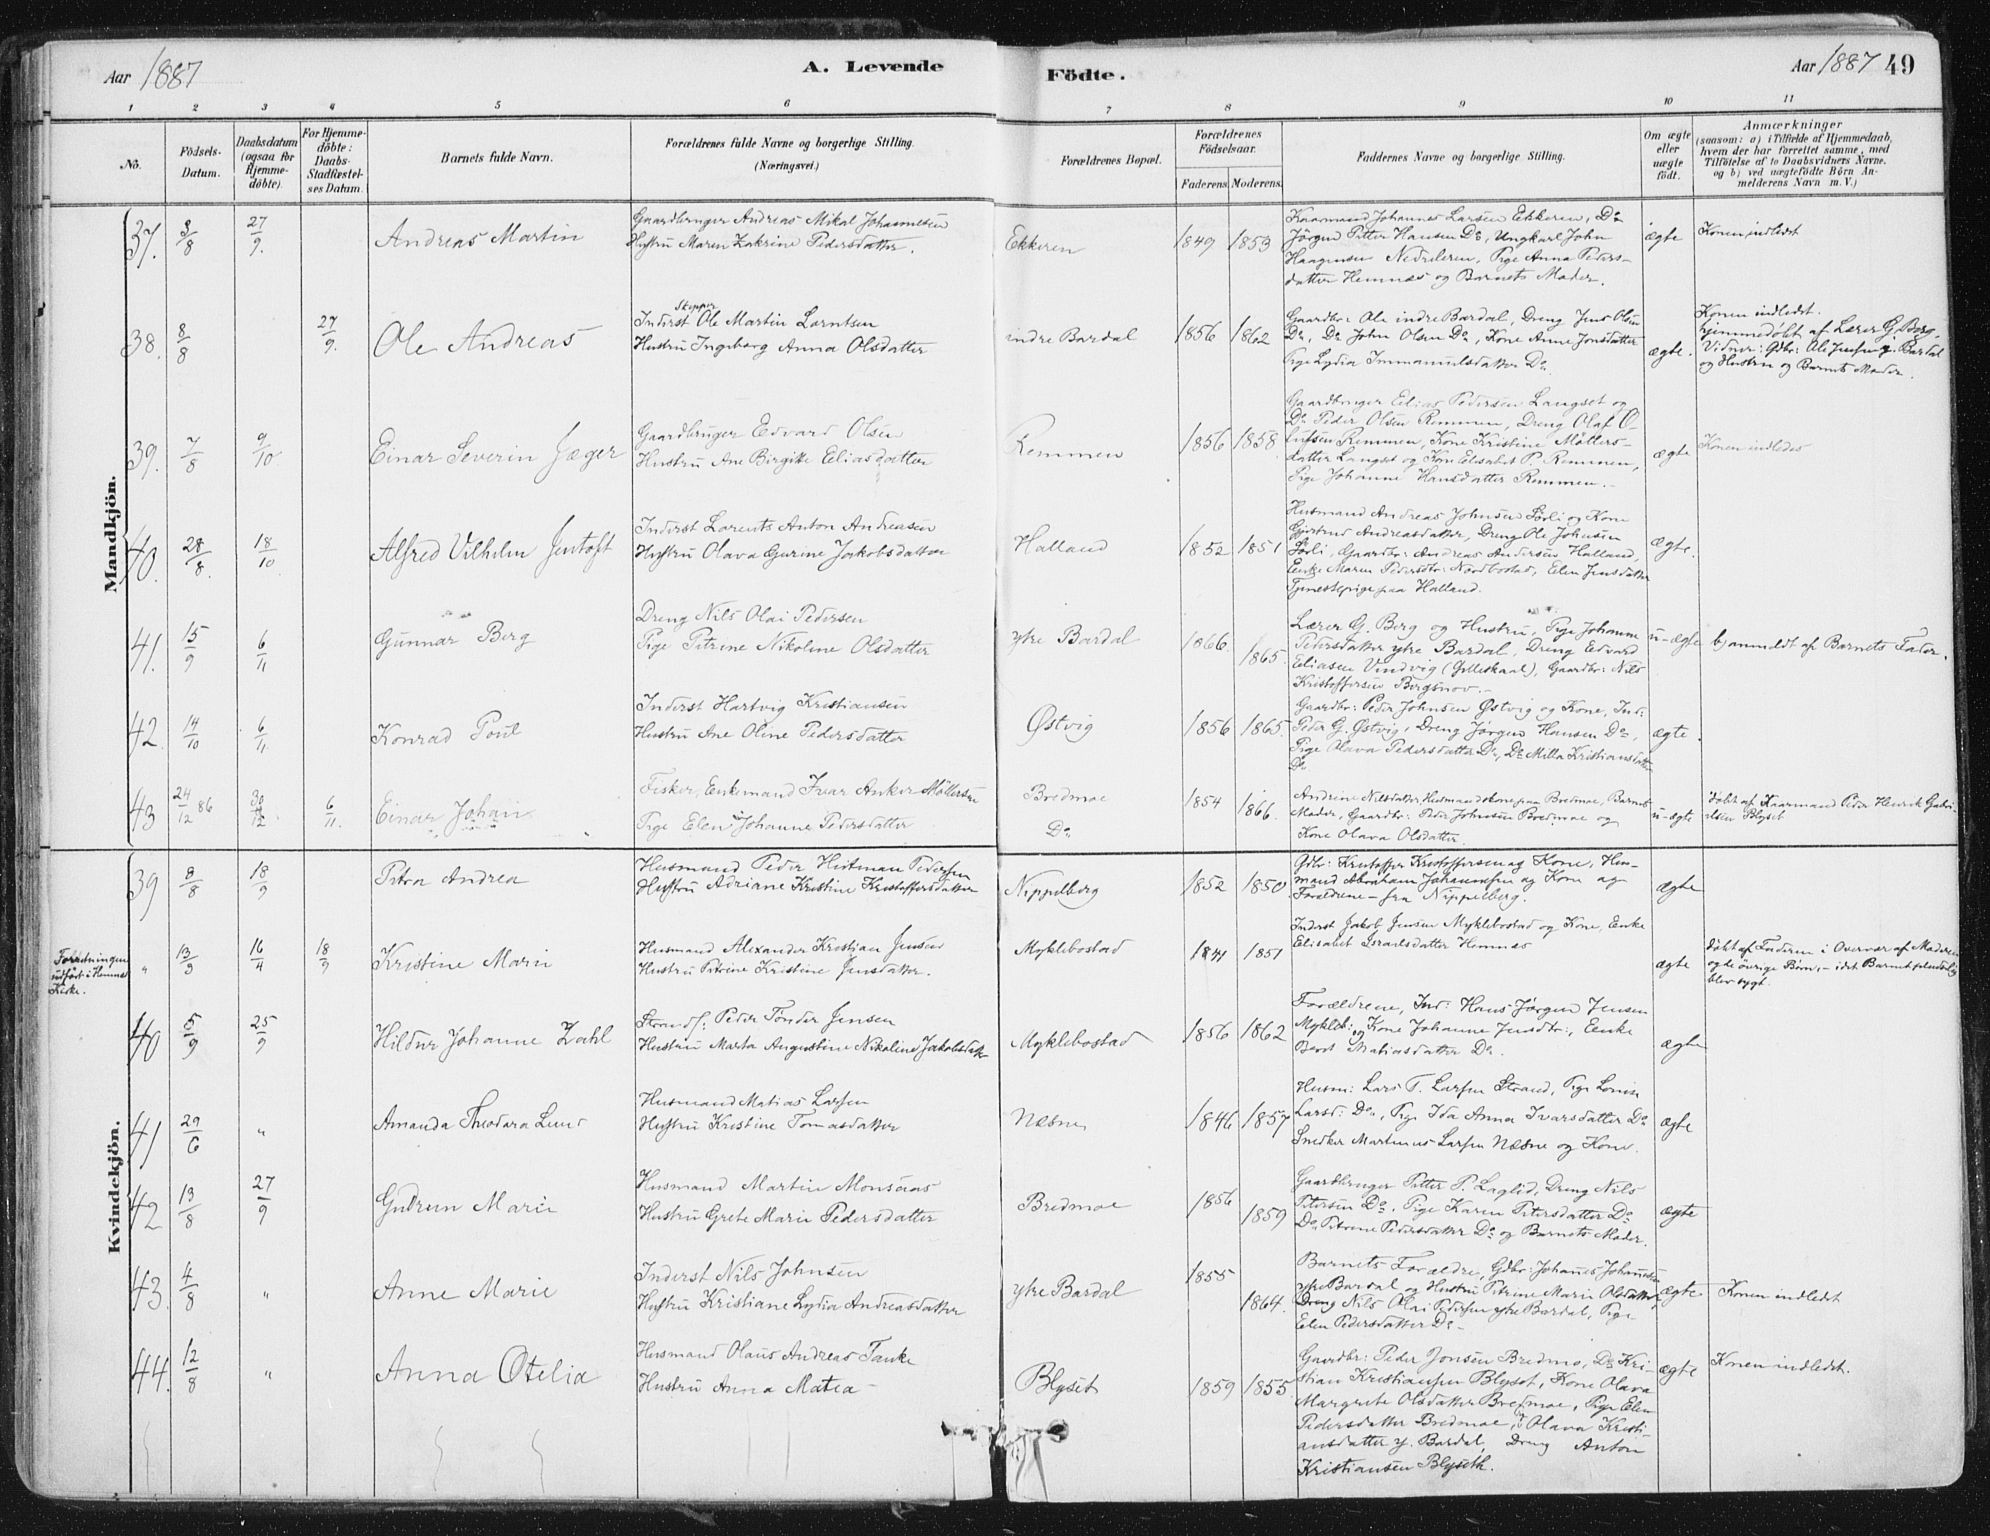 Aar 1887
A. Levende Födte.
Aar 1887 49
1 2 3 4 5 6 7 8 9 10 11
No.
Födsels-Datum.
Daabsdatum (ogsaa for Hjemme-döbte).
For Hjemme-döbte: Daabs-Stadfæstel-ses Datum.
Barnets fulde Navn.
Forældrenes fulde Navne og borgerlige Stilling. (Næringsvei.)
Forældrenes Bopæl.
Forældrenes Födselsaar.
Faderens. Moderens.
Faddernes Navne og borgerlige Stilling.
Om ægte eller uægte födt.
Anmærkninger
(saasom: a) i Tilfælde af Hjemmedaab,
hvem der har forrettet samme, med
Tilföielse af to Daabsvidners Navne.
og b) ved uægtefödte Börn An-
melderens Navn m. V.)
Mandkjön.
37. 3/8 27/9. Andreas Martin
Gaardbruger Andreas Mikal Johannesen
Hustru Maren Zakrine Pedersdatter.
Ekkeren 1849 1853
Kaarmand Johannes Larsen Ekkeren, Do
Jörgen Petter Hansen Do, Ungkarl John
Haagensen Nedreleren, Pige Anna Peders-
datter Hemnæs og Barnets Moder.
ægte Konen indledet
38. 8/8 27/9. Ole Andreas
Skipper
Inderst Ole Martin Larntsen
Hustru Ingeborg Anna Olsdatter
indre Bardal 1856 1862
Gaardbr: Ole indre Bardal, Dreng Jens Olsen
Do, Do John Olsen Do, Kone Anne Jonsdatter
Pige Lydia Immanuelsdatter Do
ægte.
Konen indledet.
hjemmedøbt af Lærer G. Berg,
Vidner: Gdbr: Ole Jensen i. Bardal
og Hustru og Barnets Moder.
39. 7/8 9/10 Einar Severin Jæger
Gaardbruger Edvard Olsen
Hustru Ane Birgitte Eliasdatter
Remmen 1856 1858
Gaardbruger Elias Pedersen Langset og
Do Peder Olsen Remmen, Dreng Olaf O-
lufsen Remmen, Kone Kristine Möllers-
datter Langset og Kone Elisabet P. Remmen,
Pige Johanne Hansdatter Remmen.
ægte Konen indledes
40. 28/8. 18/10. Alfred Vilhelm Jentoft
Inderst Lorents Anton Andreasen
Hustru Olava Gurine Jakobsdatter
Halland 1852 1851
Husmand Andreas Johnsen Sörli og Kone
Gjertrud Andreasdatter, Dreng Ole Johnsen
Sörli, Gaardbr: Andreas Andersen Halland,
Enke Maren Pedersdtr: Nordbostad, Elen Jensdatter
Tjenestepige paa Halland.
ægte.
41. 15/9 6/11 Gunnar Berg
Dreng Nils Olai Pedersen
Pige Petrine Nikoline Olsdatter
ytre Bardal 1866. 1865.
Lærer G. Berg og Hustru, Pige Johanne
Pedersdatter ytre Bardal, Dreng Edvard
Eliasen Vindvig (Gilleskaal), Gaardbr: Nils
Kristoffersen Bergsnov.
u-ægte b) anmeldt af Barnets Fader.
42. 14/10 6/11 Konrad Poul
Inderst Hartvig Kristiansen
Hustru Ane Oline Pedersdatter
Østvig 1856 1865.
Gaardbr: Peder Johnsen Østvig og Kone, Ind:
Peder G. Østvig, Dreng Jørgen Hansen Do,
Pige Olava Pedersdatter Do, Do Milla Kristiansdatter
Do
ægte.
43 24/12 86 30/12 6/11. Einar Johan
Fisker, Enkemand Ivar Anker Möllersen
Pige Elen Johanne Pedersdatter
Bredmoe
Do
1854 1866.
Andrine Nilsdatter, Husmandskone paa Bredmoe, Barnets
Moder, Gaardbr: Peder Johnsen Bredmoe og
Kone Olava Olsdatter.
u-ægte
döbt af Kaarmand Peder Henrik Gabri-
elsen Blyset
Kvindekjön.
39 8/8 18/9 Petra Andrea
Husmand Peder Hertman Pedersen
Hustru Adriane Kristine Kristoffersdatter
Nippelberg 1852 1850
Gdbr: Kristoffer Kristoffersen og Kone, Hus-
mand Abraham Johannesen og Kone og
Forældrene – fra Nippelberg.
ægte
Forretningen
udført i Hemnes
Kirke.
" 13/9 16/4 18/9 Kristine Marie
Husmand Alexander Kristian Jensen
Hustru Petrine Kristine Jensdatter.
Myklebostad 1844 1851
Inderst Jakob Jensen Myklebostad og Kone, Enke
Elisabet Israelsdatter Hemnæs
ægte
döbt af Faderen i Overvær af Moderen
og de övrige Børn, – idet Barnet pludselig
blev sygt.
40 5/9 25/9 Hildur Johanne Zahl
Strands: Peder Tönder Jensen
Hustru Marta Augustine Nikoline Jakobsdatt
Myklebostad 1856 1862
Forældrene, Ind: Hans Jörgen Jensen
Mykleb: og Kone Johanne Jensdtr:, Enke
Berit Matiasdatter Do.
ægte
41 29/6 " Amanda Theodora Lund
Husmand Matias Larsen
Hustru Kristine Tomasdatter
Næsne 1846 1857
Husm: Lars T. Larsen Strand, Pige Lovise
Larsd: Do, Pige Ida Anna Ivarsdatter Do
Snedker Martinus Larsen Næsne og Kone.
ægte
42 13/8 27/9 Gudrun Marie
Husmand Martin Monsaas
Hustru Grete Marie Pedersdatter
Bredmoe 1856 1859
Gaardbruger Petter P. Laglid, Dreng Nils
Petersen Do, Pige Karen Petersdatter Do
Do Petrine Pedersdatter Do og Barnets Moder.
ægte
43. 4/8 " Anne Marie
Inderst Nils Johnsen
Hustru Kristiane Lydia Andreasdatter
ytre Bardal 1855 1864.
Barnets Forældre, Gdbr: Johanes Johannesen
ytre Bardal og Hustru Petrine Marie Olsdatter,
Dreng Nils Olai Pedersen ytre Bardal, Pige
Elen Pedersdatter Do
ægte Konen indledet
44. 12/8 " Anna Otelia
Husmand Olaus Andreas Tanke
Hustru Anna Matea
Blyset 1859 1855
Gaardbr: Peder Jonsen Bredmo, Do Kri-
stian Kristiansen Blyset, Kone Olava
Margrete Olsdatter Bredmoe, Pige Elen
Pedersdatter Bredmoe, Do Olava Kristi-
ansdatter y. Bardal, Dreng Anton
Kristiansen Blyseth.
ægte Konen indledet.